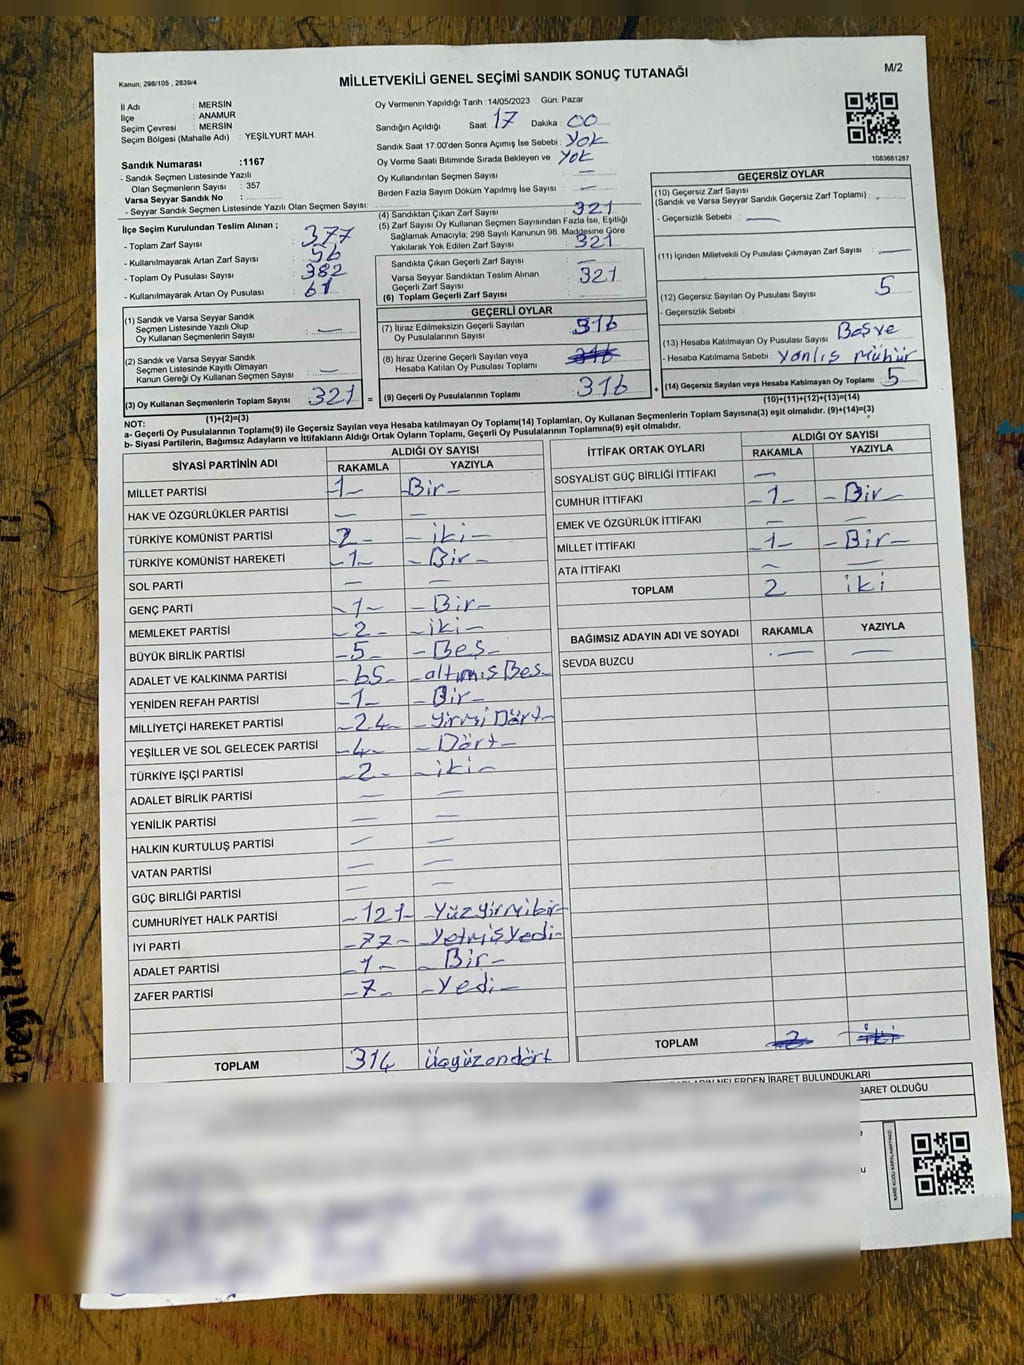 Kanun: 298/105 , 2839/4
MİLLETVEKİLİ GENEL SEÇİMİ SANDIK SONUÇ TUTANAĞI
M/2
İl Adı : MERSİN
İlçe : ANAMUR
Seçim Çevresi : MERSİN
Seçim Bölgesi (Mahalle Adı) : YEŞİLYURT MAH.
Sandık Numarası :1167
- Sandık Seçmen Listesinde Yazılı
Olan Seçmenlerin Sayısı : 357
Varsa Seyyar Sandık No :
- Seyyar Sandık Seçmen Listesinde Yazılı Olan Seçmen Sayısı:
Oy Vermenin Yapıldığı Tarih :14/05/2023 Gün: Pazar
Sandığın Açıldığı Saat: 17 Dakika : 00
Sandık Saat 17:00'den Sonra Açımış İse Sebebi : Yok
Oy Verme Saati Bitiminde Sırada Bekleyen ve Yok
Oy Kullandırılan Seçmen Sayısı : —
Birden Fazla Sayım Döküm Yapılmış İse Sayısı : —
1083661287
İlçe Seçim Kurulundan Teslim Alınan ;
- Toplam Zarf Sayısı : 377
- Kullanılmayarak Artan Zarf Sayısı : 56
- Toplam Oy Pusulası Sayısı : 382
- Kullanılmayarak Artan Oy Pusulası : 61
(1) Sandık ve Varsa Seyyar Sandık
Seçmen Listesinde Yazılı Olup
Oy Kullanan Seçmenlerin Sayısı : —
(2) Sandık ve Varsa Seyyar Sandık
Seçmen Listesinde Kayıtlı Olmayan
Kanun Gereği Oy Kullanan Seçmen Sayısı : —
(3) Oy Kullanan Seçmenlerin Toplam Sayısı : 321
(1)+(2)=(3)
(4) Sandıktan Çıkan Zarf Sayısı : 321
(5) Zarf Sayısı Oy Kullanan Seçmen Sayısından Fazla İse, Eşitliği
Sağlamak Amacıyla; 298 Sayılı Kanunun 98. Maddesine Göre
Yakılarak Yok Edilen Zarf Sayısı : 321
Sandıkta Çıkan Geçerli Zarf Sayısı : —
Varsa Seyyar Sandıktan Teslim Alınan
Geçerli Zarf Sayısı : 321
(6) Toplam Geçerli Zarf Sayısı :
GEÇERLİ OYLAR
(7) İtiraz Edilmeksizin Geçerli Sayılan
Oy Pusulalarının Sayısı : 316
(8) İtiraz Üzerine Geçerli Sayılan veya
Hesaba Katılan Oy Pusulası Toplamı : 316
= (9) Geçerli Oy Pusulalarının Toplamı : 316 +
GEÇERSİZ OYLAR
(10) Geçersiz Zarf Sayısı
(Sandık ve Varsa Seyyar Sandık Geçersiz Zarf Toplamı) :
- Geçersizlik Sebebi : —
(11) İçinden Milletvekili Oy Pusulası Çıkmayan Zarf Sayısı : —
(12) Geçersiz Sayılan Oy Pusulası Sayısı : 5
- Geçersizlik Sebebi :
(13) Hesaba Katılmayan Oy Pusulası Sayısı : Boş ve
- Hesaba Katılmama Sebebi : Yanlış Mühür
(14) Geçersiz Sayılan veya Hesaba Katılmayan Oy Toplamı : 5
(10)+(11)+(12)+(13)=(14)
NOT:
a- Geçerli Oy Pusulalarının Toplamı(9) ile Geçersiz Sayılan veya Hesaba katılmayan Oy Toplamı(14) Toplamları, Oy Kullanan Seçmenlerin Toplam Sayısına(3) eşit olmalıdır. (9)+(14)=(3)
b- Siyasi Partilerin, Bağımsız Adayların ve İttifakların Aldığı Ortak Oyların Toplamı, Geçerli Oy Pusulalarının Toplamına(9) eşit olmalıdır.
SİYASİ PARTİNİN ADI ALDIĞI OY SAYISI
RAKAMLA YAZIYLA
MİLLET PARTİSİ -1- Bir-
HAK VE ÖZGÜRLÜKLER PARTİSİ — —
TÜRKİYE KOMÜNİST PARTİSİ -2- -iki-
TÜRKİYE KOMÜNİST HAREKETİ -1- -Bir-
SOL PARTİ — —
GENÇ PARTİ -1- -Bir-
MEMLEKET PARTİSİ -2- -iki-
BÜYÜK BİRLİK PARTİSİ -5- -Beş-
ADALET VE KALKINMA PARTİSİ -65- -altmış Beş-
YENİDEN REFAH PARTİSİ -1- -Bir-
MİLLİYETÇİ HAREKET PARTİSİ -24- -yirmi Dört-
YEŞİLLER VE SOL GELECEK PARTİSİ -4- -Dört-
TÜRKİYE İŞÇİ PARTİSİ -2- -iki-
ADALET BİRLİK PARTİSİ — —
YENİLİK PARTİSİ — —
HALKIN KURTULUŞ PARTİSİ — —
VATAN PARTİSİ — —
GÜÇ BİRLİĞİ PARTİSİ — —
CUMHURİYET HALK PARTİSİ -121- -Yüzyirmibir-
İYİ PARTİ -77- -Yetmişyedi-
ADALET PARTİSİ -1- -Bir-
ZAFER PARTİSİ -7- -Yedi-
TOPLAM 314 üçyüzondört
İTTİFAK ORTAK OYLARI ALDIĞI OY SAYISI
RAKAMLA YAZIYLA
SOSYALİST GÜÇ BİRLİĞİ İTTİFAKI —
CUMHUR İTTİFAKI -1- -Bir-
EMEK VE ÖZGÜRLÜK İTTİFAKI — —
MİLLET İTTİFAKI -1- -Bir-
ATA İTTİFAKI — —
TOPLAM 2 iki
BAĞIMSIZ ADAYIN ADI VE SOYADI RAKAMLA YAZIYLA
SEVDA BUZCU — —
TOPLAM 2 iki
NELERDEN İBARET BULUNDUKLARI
BARET OLDUĞU